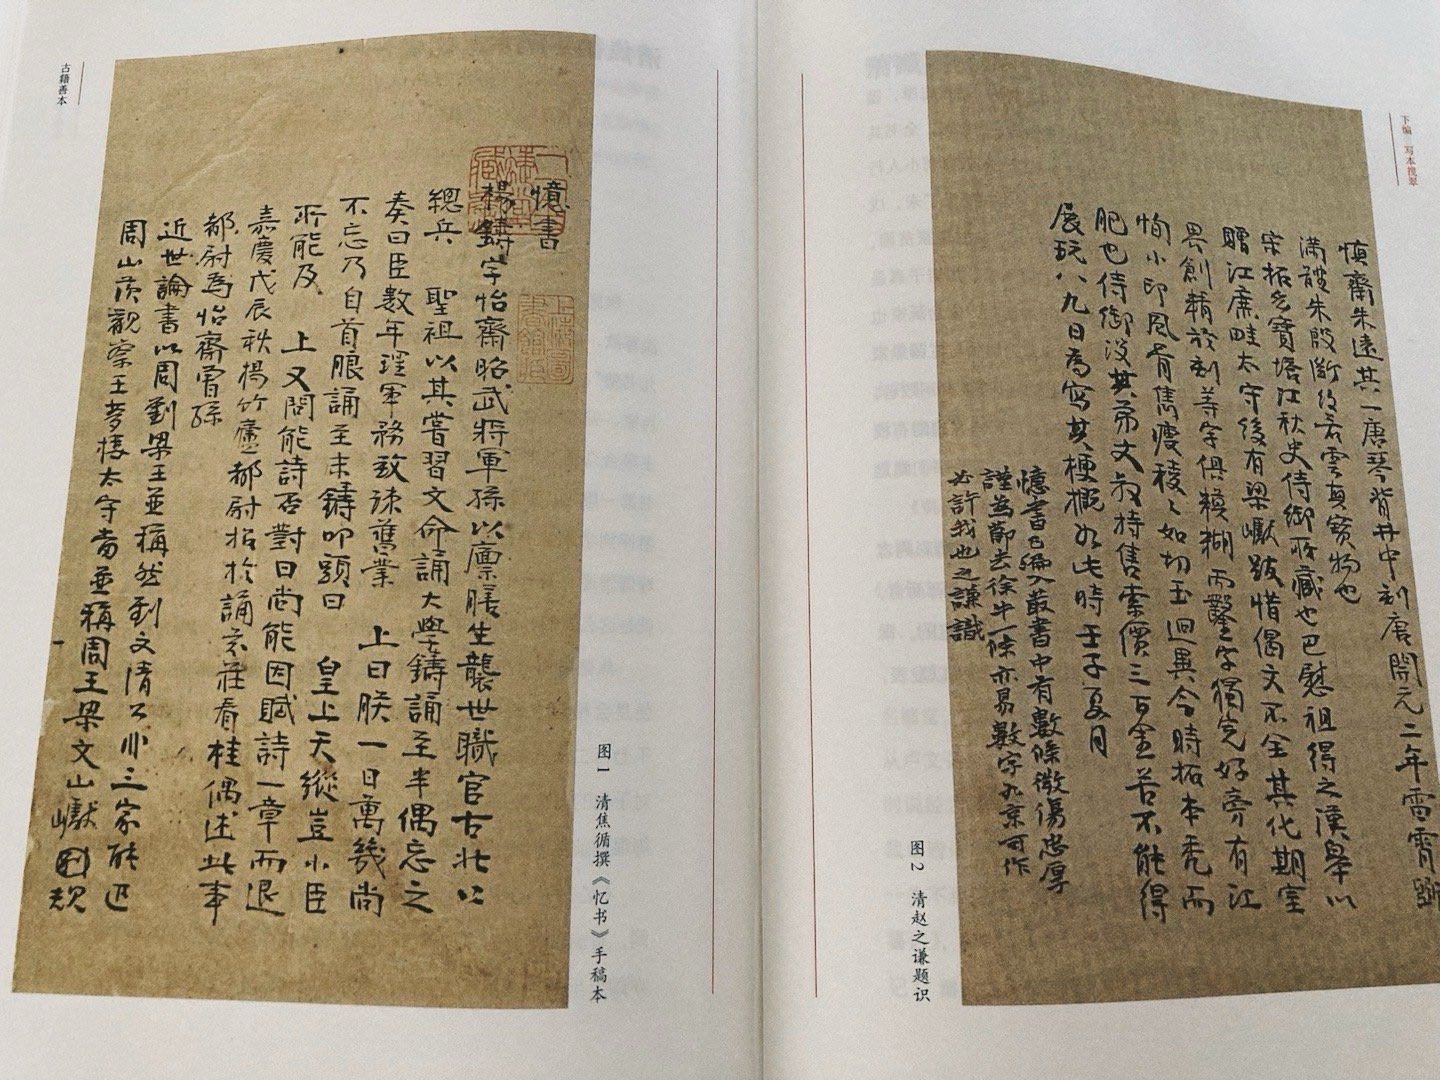 古籍善本
憶書
楊鑄字怡齋昭武將軍孫以廪膳生襲世職官古北口
總兵 聖祖以其嘗習文命誦大學鑄誦至半偶忘之
奏曰臣數年理軍務致疎舊業 上曰朕一日萬幾尚
不忘乃自首朗誦至末鑄叩頭曰 皇上天縱豈小臣
所能及 上又問能詩否對曰尚能因賦詩一章而退
嘉慶戊辰秋楊竹廬都尉招於誦芬莊看桂偶述此事
都尉為怡齋曾孫
近世論書以周劉梁王並稱然劉文清公非三家能近
周山茨觀察王夢樓太守當並稱周王梁文山巘
图1 清焦循撰《忆书》手稿本
下编 写本撷翠
慎齋朱遠共一唐琴背井中刻唐開元二年雷霄
滿龍朱殷斷紋若雲真寶物也
宋拓多寶塔江秋史侍御所藏也巴慰祖得之漢皋以
贈江廉畦太守後有梁巘跋惜偶文不全其化期室
界創精於刻等字俱模糊而鑿字獨完好旁有江
恂小印風骨雋瘦稜稜如切玉迥異今時拓本禿而
肥也侍御没其弟文叔持售索價三百金苦不能得
展玩八九日為寫其梗概如此時壬子夏月
憶書已編入叢書中有數條微傷忠厚
謹為節去徐牛一條亦易數字九京可作
必許我也之謙識
图2 清赵之谦题识